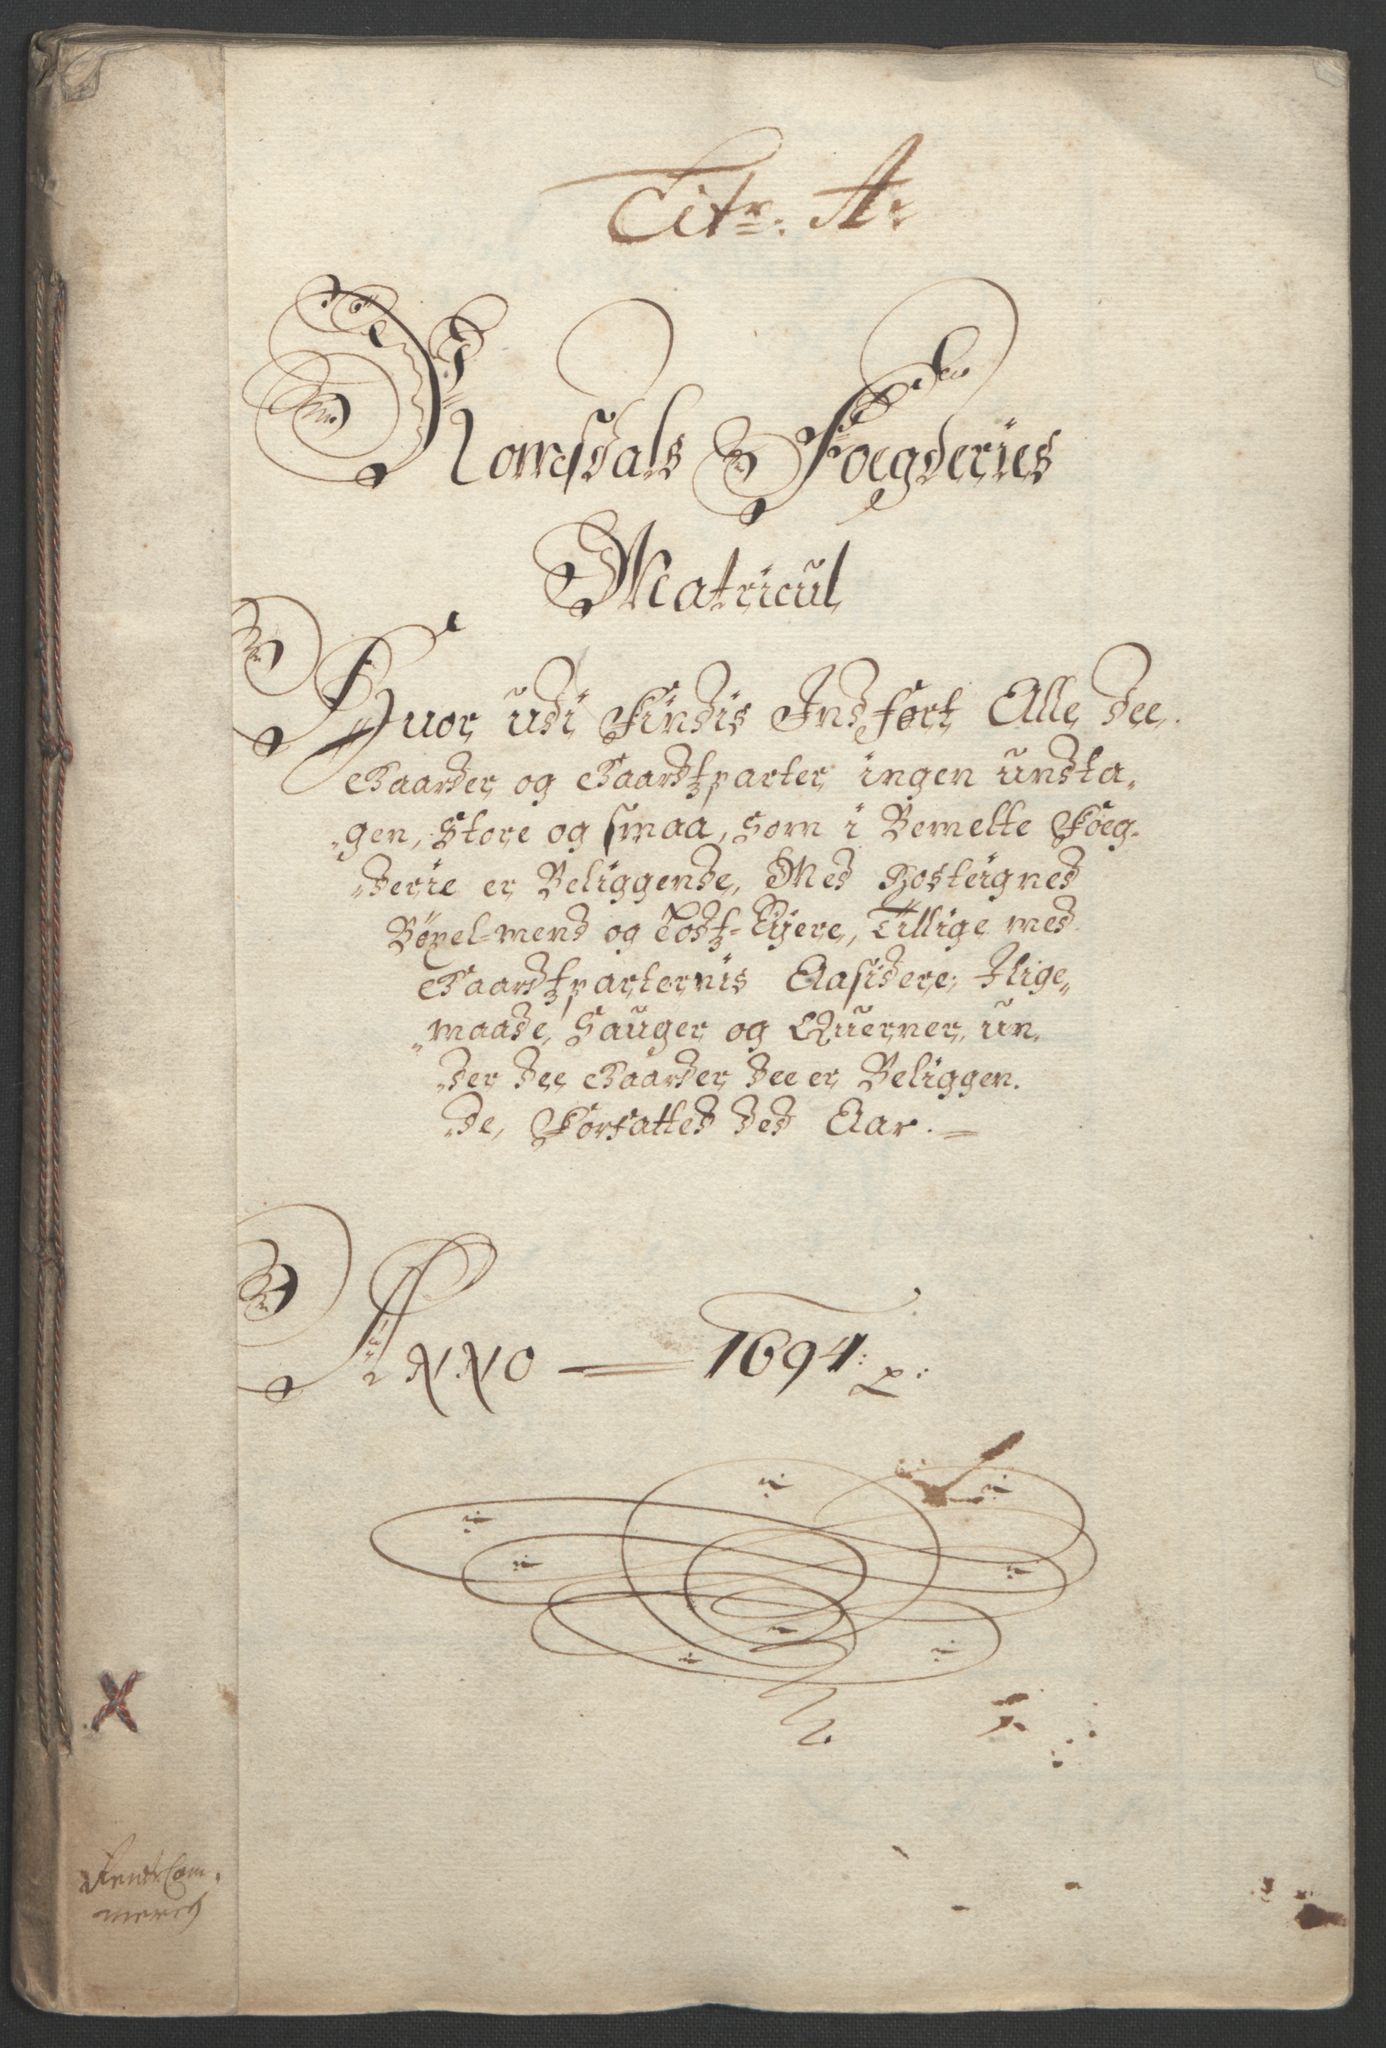 Litr. A.
Romsdals Foegderies
Matricul
Huor udi Findis Indført Alle dee
Gaarder og Gaardtzparter ingen undta-
gen, Store og smaa, som i Bemelte Foeg-
derie er Beliggende, Med Hosteigned
Bøxel-mend og Lodtz-Eyere, Tillige med
Gaardtzparternis Aasidere; Jlige-
maade, Sauger og Querner, un-
der dee Gaarder dee er Beliggen-
de, Forfatted ded Aar.
ANNO — 1694:
RenteCam-
merid